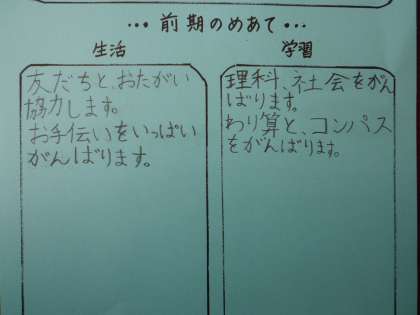 ・・・前期のめあて・・・
生活
友だちと、おたがい
協力します。
お手伝いをいっぱい
がんばります。
学習
理科、社会をがん
ばります。
わり算と、コンパス
をがんばります。